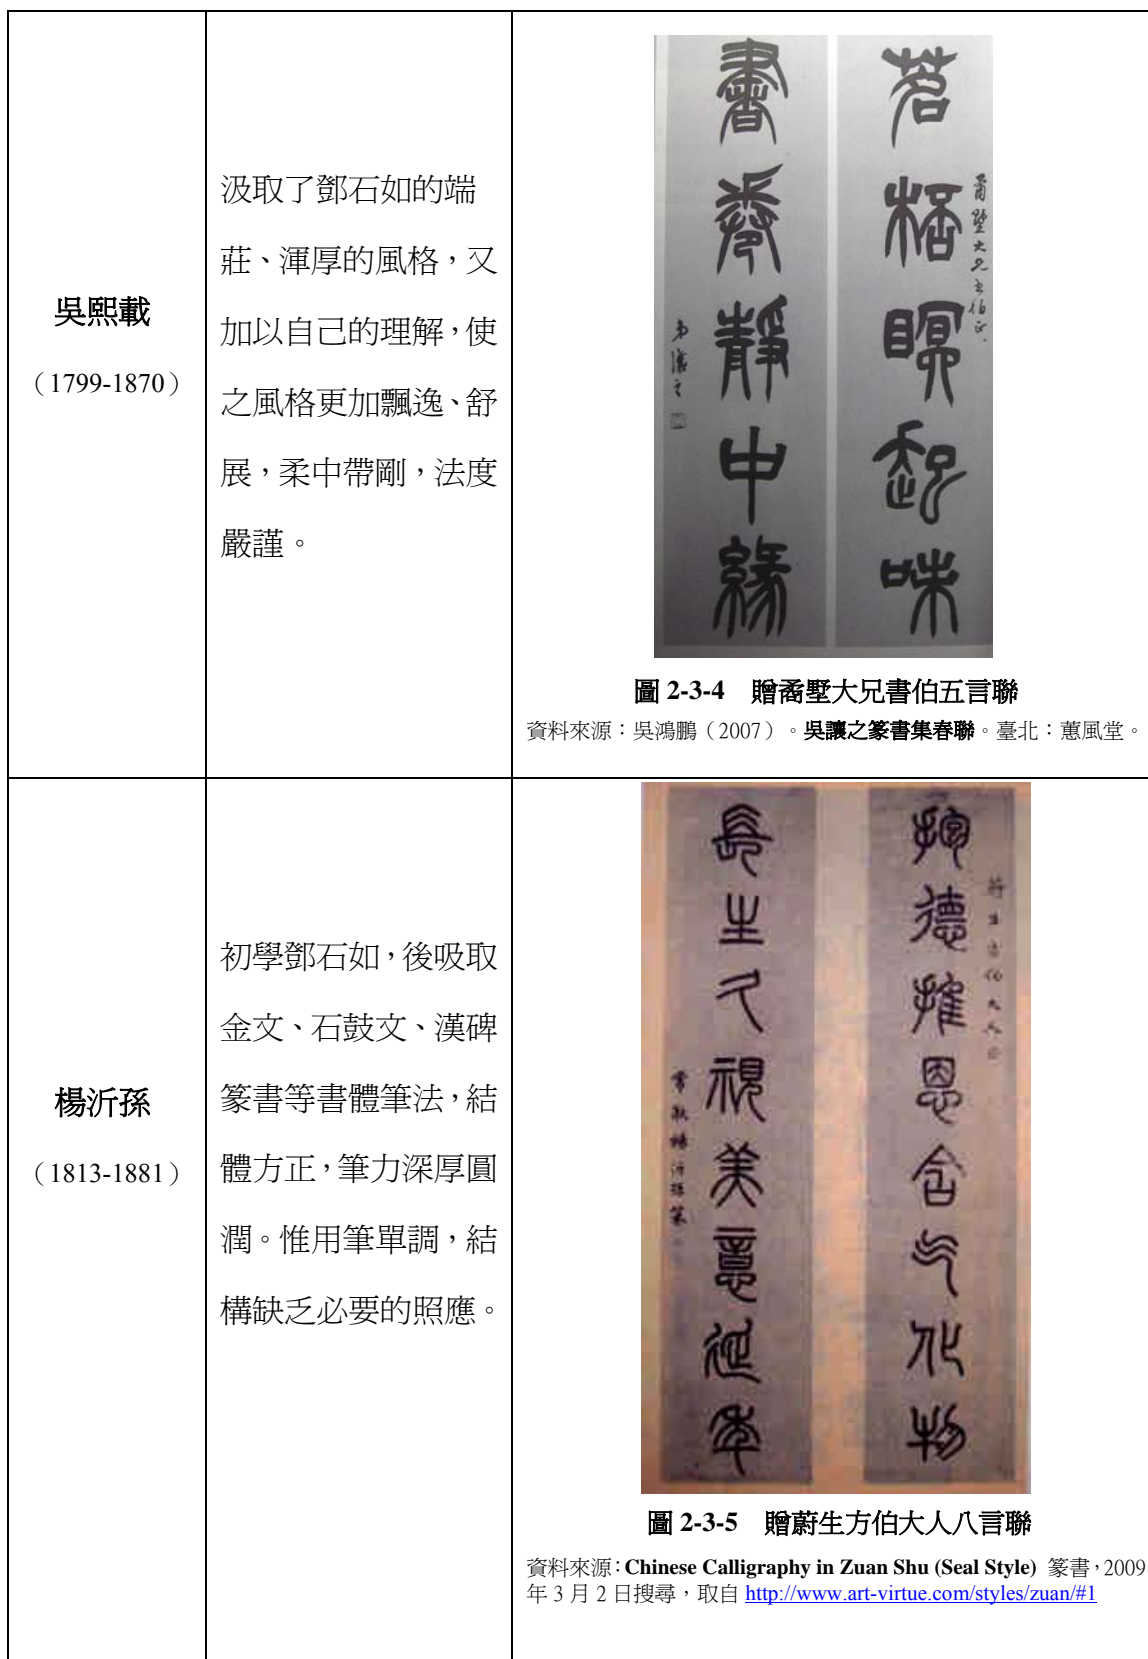 吳熙載
（1799-1870）
汲取了鄧石如的端
莊、渾厚的風格，又
加以自己的理解，使
之風格更加飄逸、舒
展，柔中帶剛，法度
嚴謹。
茗桮瞑起味
矞墅大兄書伯正
書卷靜中緣
弟讓之
圖 2-3-4 贈矞墅大兄書伯五言聯
資料來源：吳鴻鵬（2007）。吳讓之篆書集春聯。臺北：蕙風堂。
楊沂孫
（1813-1881）
初學鄧石如，後吸取
金文、石鼓文、漢碑
篆書等書體筆法，結
體方正，筆力深厚圓
潤。惟用筆單調，結
構缺乏必要的照應。
抱德推恩含气化物
長生久視美意延年
常熟楊沂孫篆
圖 2-3-5 贈蔚生方伯大人八言聯
資料來源：Chinese Calligraphy in Zuan Shu (Seal Style) 篆書，2009
年 3 月 2 日搜尋，取自 http://www.art-virtue.com/styles/zuan/#1